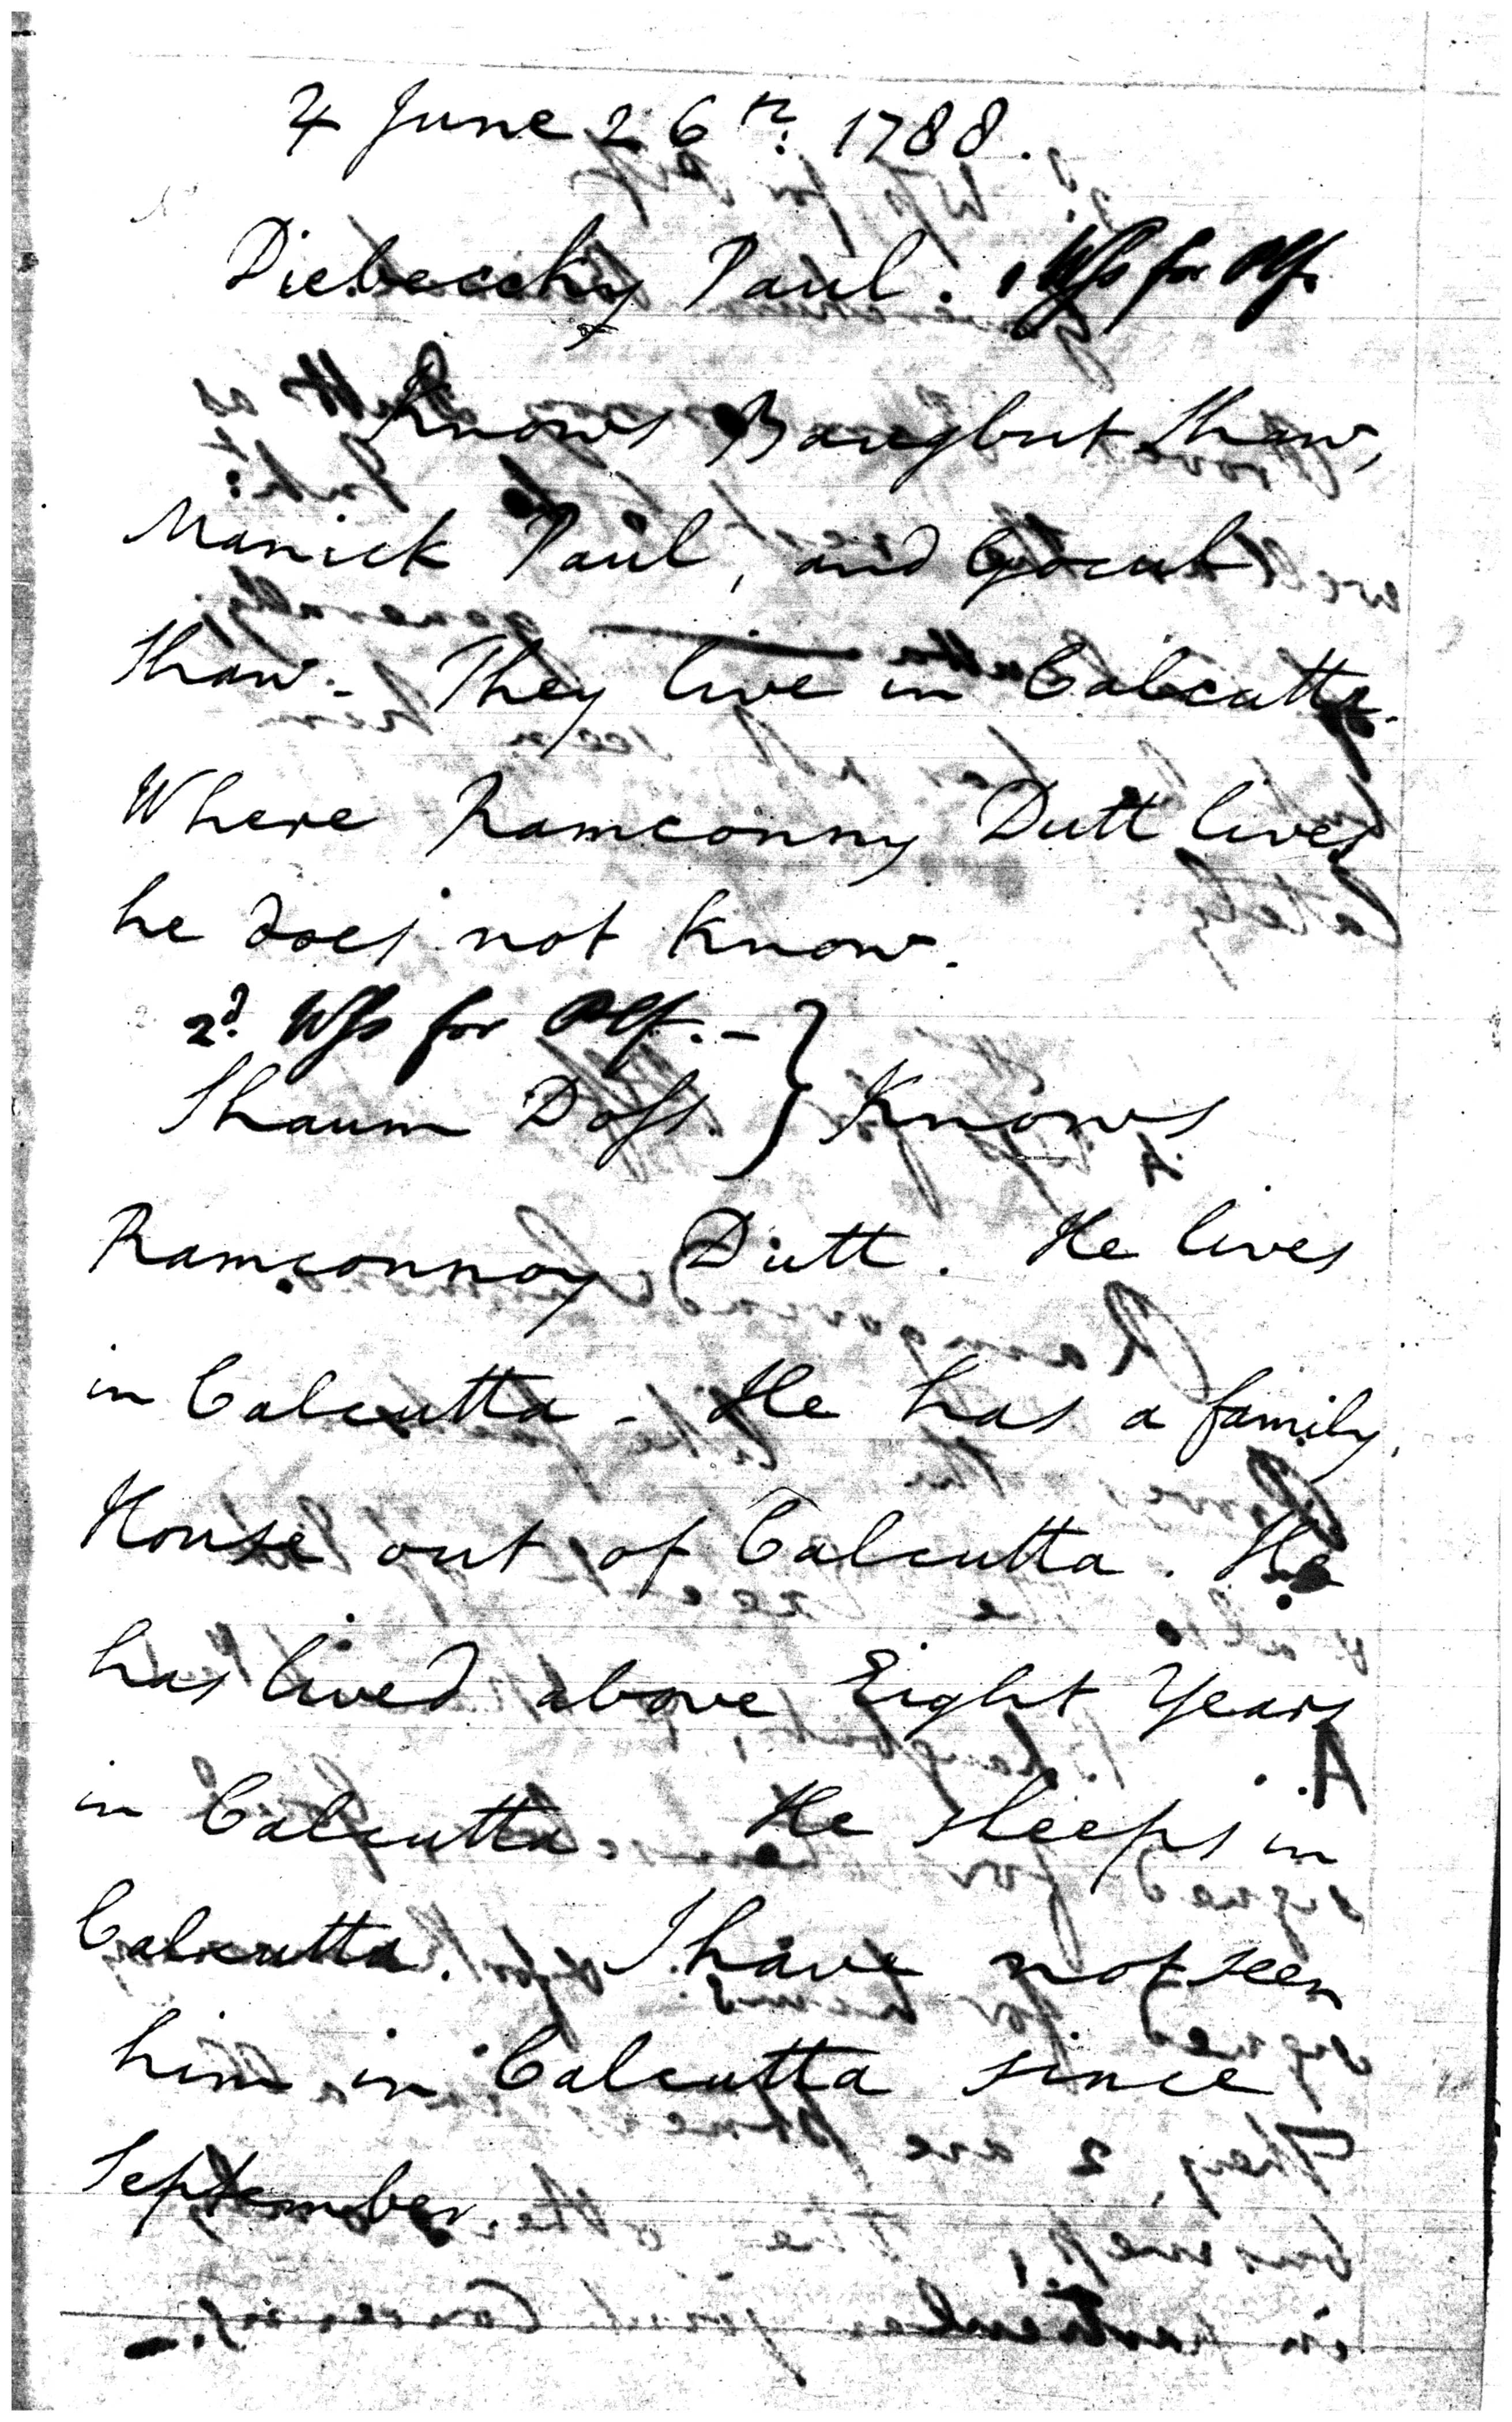 4 June 26th. 1788.
Diebecchy Paul. Wss for Plf.
Knows Bangbut Shaw,
Manick Paul, and Gocul
Shaw. - They live in Calcutta.
Where Ramconny Dutt lives
he does not know.
2d. Wss for Plf. -
Shaum Doss. } Knows
Ramconnoy Dutt. He lives
in Calcutta - He has a family
House out of Calcutta. He
has lived above Eight Years
in Calcutta. He sleeps in
Calcutta. I have not seen
him in Calcutta since
September.